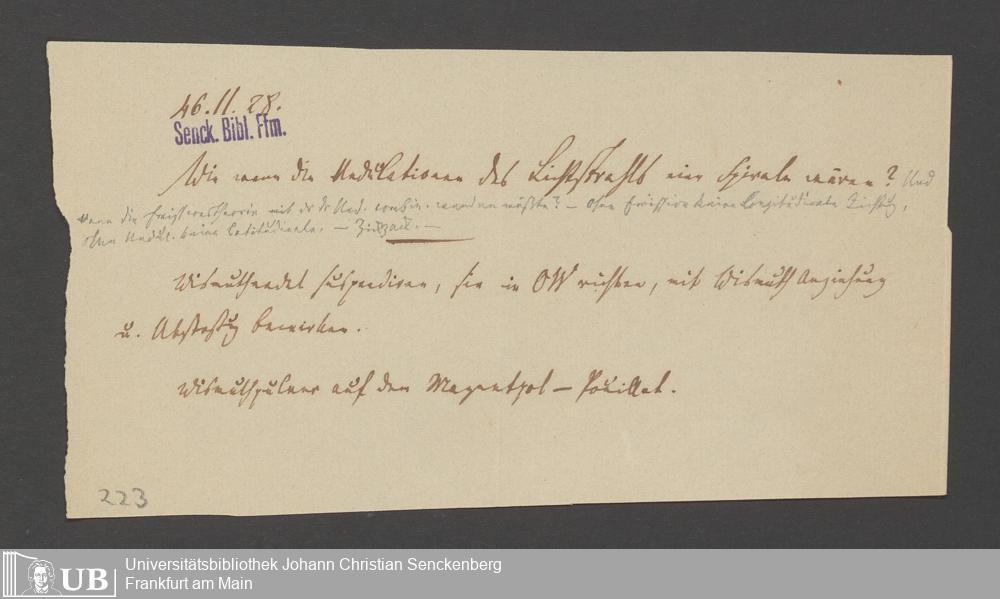 46.11.28.
Senck. Bibl. Ffm.
Wie wenn die Undulationen des Lichtstrahls eine Spirale wären? Und
wenn die Emissionstheorie mit der Und. combin. werden müßte? – Ohne Emission keine longitudinale Richtung,
ohne Undul. keine latitudinale. – Zickzack. –
Wismuthnadel suspendiren, sie in OW richten, mit Wismuth Anziehung
u. Abstoßung bewirken.
Wismuthpulver auf den Magnetpol – Pouillet.
223
UB
Universitätsbibliothek Johann Christian Senckenberg
Frankfurt am Main